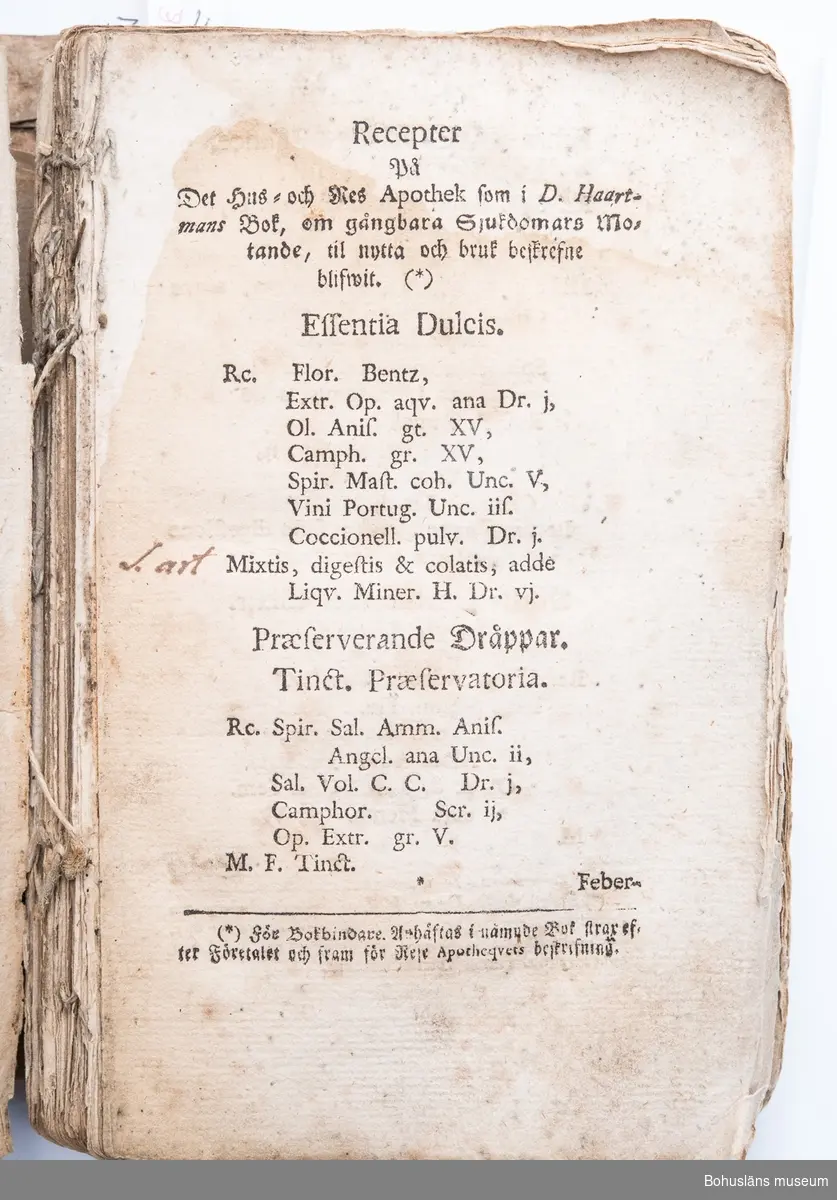 Recepter
På
Det Hus- och Res Apothek som i D. Haart-
mans Bok, om gångbara Sjukdomars Mo-
tande, til nytta och bruk beskrefne
blifwit. (*)
Eſſentia Dulcis.
Rc. Flor. Bentz,
Extr. Op. aqv. ana Dr. j,
Ol. Aniſ. gt. XV,
Camph. gr. XV,
Spir. Maſt. coh. Unc. V,
Vini Portug. Unc. iiſ.
Coccionell. pulv. Dr. j.
S. art Mixtis, digeſtis & colatis, adde
Liqv. Miner. H. Dr. vj.
Præſerverande Dråppar.
Tinct. Præſervatoria.
Rc. Spir. Sal. Amm. Aniſ.
Angel. ana Unc. ii,
Sal. Vol. C. C. Dr. j,
Camphor. Scr. ij,
Op. Extr. gr. V.
M. F. Tinct.
* Feber-
(*) För Bokbindare. Anhäftas i nämnde Bok strax ef-
ter Företalet och fram för Rese Apotheqvets beskrifning.
Bohusläns museum